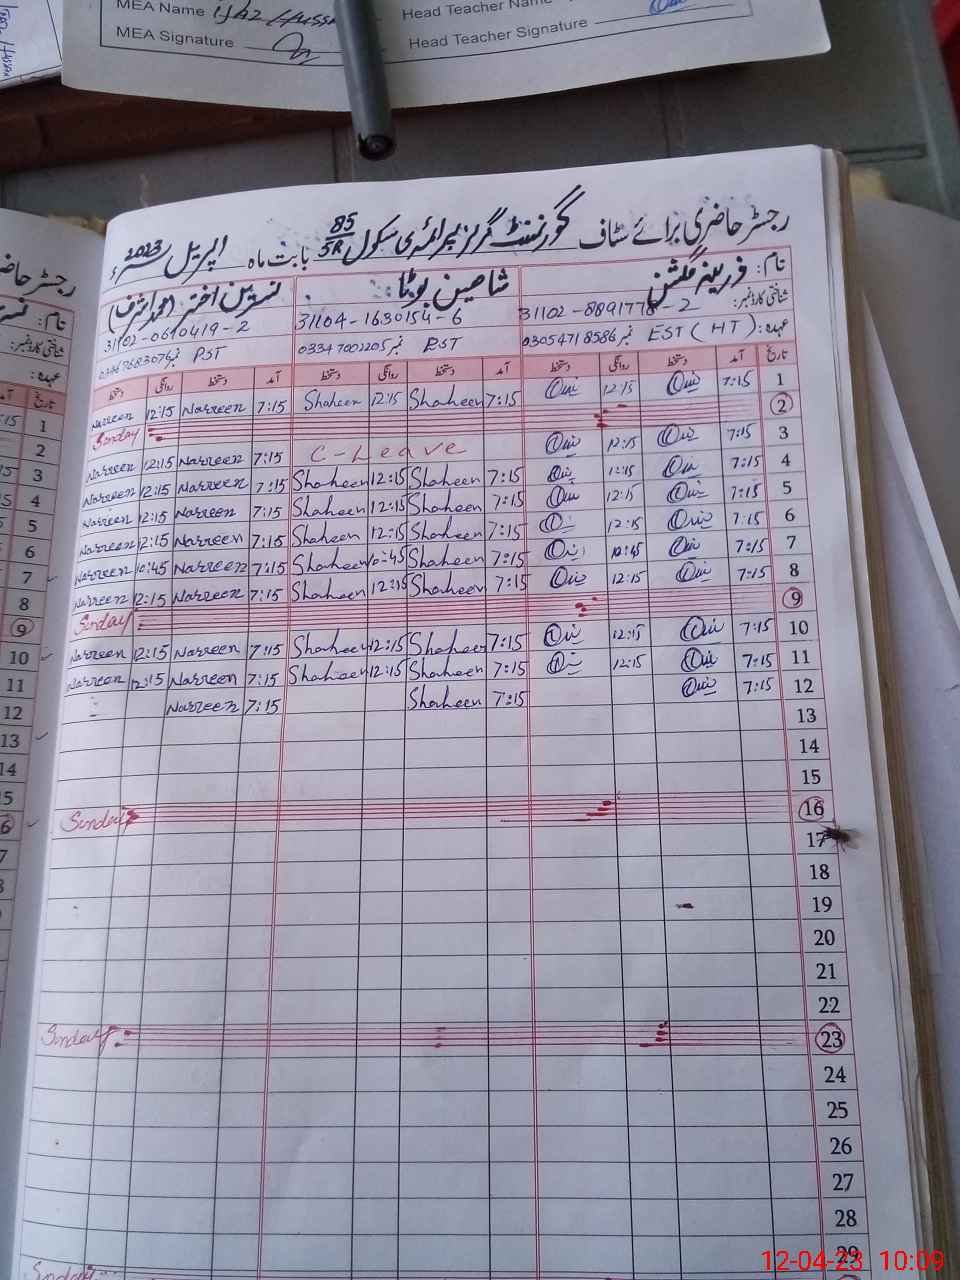 MEA Name
Head Teacher Name
MEA Signature
Head Teacher Signature
رجسٹر حاضری برائے سٹاف گورنمنٹ گرلز پرائمری سکول 85/5R بابت ماہ اپریل 2023ء
نام: فرزینہ گلشن شاھین بوٹا نسرین اختر (محمد اشرف)
شناختی کارڈ نمبر: 31102-8891778-2 31104-1630154-6 31102-0610419-2
عہدہ: EST (HT) نمبر 03054718586 PST نمبر 03347001205 PST نمبر
تاریخ آمد دستخط روانگی دستخط آمد دستخط روانگی دستخط آمد دستخط روانگی دستخط
1 7:15 12:15 7:15 Shaheen 12:15 Shaheen 7:15 Narreen 12:15 Narreen
2 Sunday
3 7:15 12:15 C-Leave 7:15 Narreen 12:15 Narreen
4 7:15 12:15 7:15 Shaheen 12:15 Shaheen 7:15 Narreen 12:15 Narreen
5 7:15 12:15 7:15 Shaheen 12:15 Shaheen 7:15 Narreen 12:15 Narreen
6 7:15 12:15 7:15 Shaheen 12:15 Shaheen 7:15 Narreen 12:15 Narreen
7 7:15 10:45 7:15 Shaheen 10:45 Shaheen 7:15 Narreen 10:45 Narreen
8 7:15 12:15 7:15 Shaheen 12:15 Shaheen 7:15 Narreen 12:15 Narreen
9 Sunday
10 7:15 12:15 7:15 Shaheen 12:15 Shaheen 7:15 Narreen 12:15 Narreen
11 7:15 12:15 7:15 Shaheen 12:15 Shaheen 7:15 Narreen 12:15 Narreen
12 7:15 7:15 Shaheen 7:15 Narreen
13
14
15
16 Sunday
17
18
19
20
21
22
23 Sunday
24
25
26
27
28
29
Sunday
رجسٹر
نام:
شناختی کارڈ نمبر:
عہدہ:
تاریخ
1
2
3
4
5
6
7
8
9
10
11
12
13
14
12-04-23 10:09